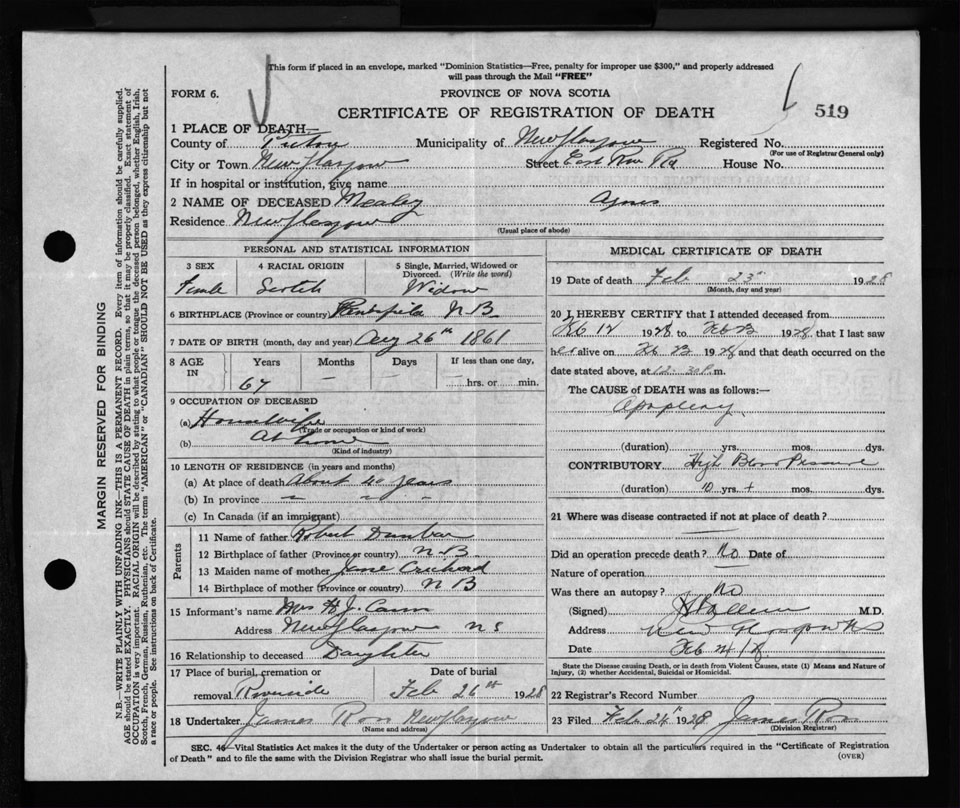 This form if placed in an envelope, marked "Dominion Statistics—Free, penalty for improper use $300," and properly addressed
will pass through the Mail "FREE"
FORM 6. PROVINCE OF NOVA SCOTIA
CERTIFICATE OF REGISTRATION OF DEATH 519
1 PLACE OF DEATH—
County of Pictou Municipality of New Glasgow Registered No.
(For use of Registrar General only)
City or Town New Glasgow Street East River Rd House No.
If in hospital or institution, give name
2 NAME OF DECEASED Mealey Agnes
Residence New Glasgow
(Usual place of abode)
PERSONAL AND STATISTICAL INFORMATION
3 SEX 4 RACIAL ORIGIN 5 Single, Married, Widowed or
Divorced. (Write the word)
Female Scotch Widow
6 BIRTHPLACE (Province or country) N B
7 DATE OF BIRTH (month, day and year) Aug 26th 1861
8 AGE IN Years Months Days If less than one day,
67 — hrs. or min.
9 OCCUPATION OF DECEASED
(a) Housewife
(Trade or occupation or kind of work)
(b) At home
(Kind of industry)
10 LENGTH OF RESIDENCE (in years and months)
(a) At place of death About 40 years
(b) In province " " "
(c) In Canada (if an immigrant)
Parents
11 Name of father Robert Dunbar
12 Birthplace of father (Province or country) N B
13 Maiden name of mother Jane
14 Birthplace of mother (Province or country) N B
15 Informant's name Mrs H. J.
Address New Glasgow N S
16 Relationship to deceased Daughter
17 Place of burial, cremation or Date of burial
removal Riverside Feb 26th 1928
18 Undertaker James Ross New Glasgow
(Name and address)
MEDICAL CERTIFICATE OF DEATH
19 Date of death Feb 23rd 1928
(Month, day and year)
20 I HEREBY CERTIFY that I attended deceased from
Feb 12 1928 to Feb 23 1928 that I last saw
her alive on Feb 23 1928 and that death occurred on the
date stated above, at 12.30 P.m.
The CAUSE of DEATH was as follows:—
Apoplexy
(duration) yrs. mos. dys.
CONTRIBUTORY High Blood Pressure
(duration) 10 yrs + mos. dys.
21 Where was disease contracted if not at place of death?
Did an operation precede death? No Date of
Nature of operation
Was there an autopsy? No
(Signed) M.D.
Address New Glasgow N S
Date Feb 24
State the Disease causing Death, or in death from Violent Causes, state (1) Means and Nature of
Injury, (2) whether Accidental, Suicidal or Homicidal.
22 Registrar's Record Number
23 Filed Feb 26th 1928 James Ross
(Division Registrar)
SEC. 46—Vital Statistics Act makes it the duty of the Undertaker or person acting as Undertaker to obtain all the particulars required in the "Certificate of Registration
of Death" and to file the same with the Division Registrar who shall issue the burial permit.
(OVER)
MARGIN RESERVED FOR BINDING
N.B.—WRITE PLAINLY WITH UNFADING INK—THIS IS A PERMANENT RECORD. Every item of information should be carefully supplied.
AGE should be stated EXACTLY. PHYSICIANS should STATE CAUSE OF DEATH in plain terms, so that it may be properly classified. Exact statement of
OCCUPATION is very important. RACIAL ORIGIN will be described by stating to what people or tongue the deceased person belonged, whether English, Irish,
Scotch, French, German, Russian, Ruthenian, etc. The terms "AMERICAN" or "CANADIAN" SHOULD NOT BE USED as they express citizenship but not
a race or people. See instructions on back of Certificate.